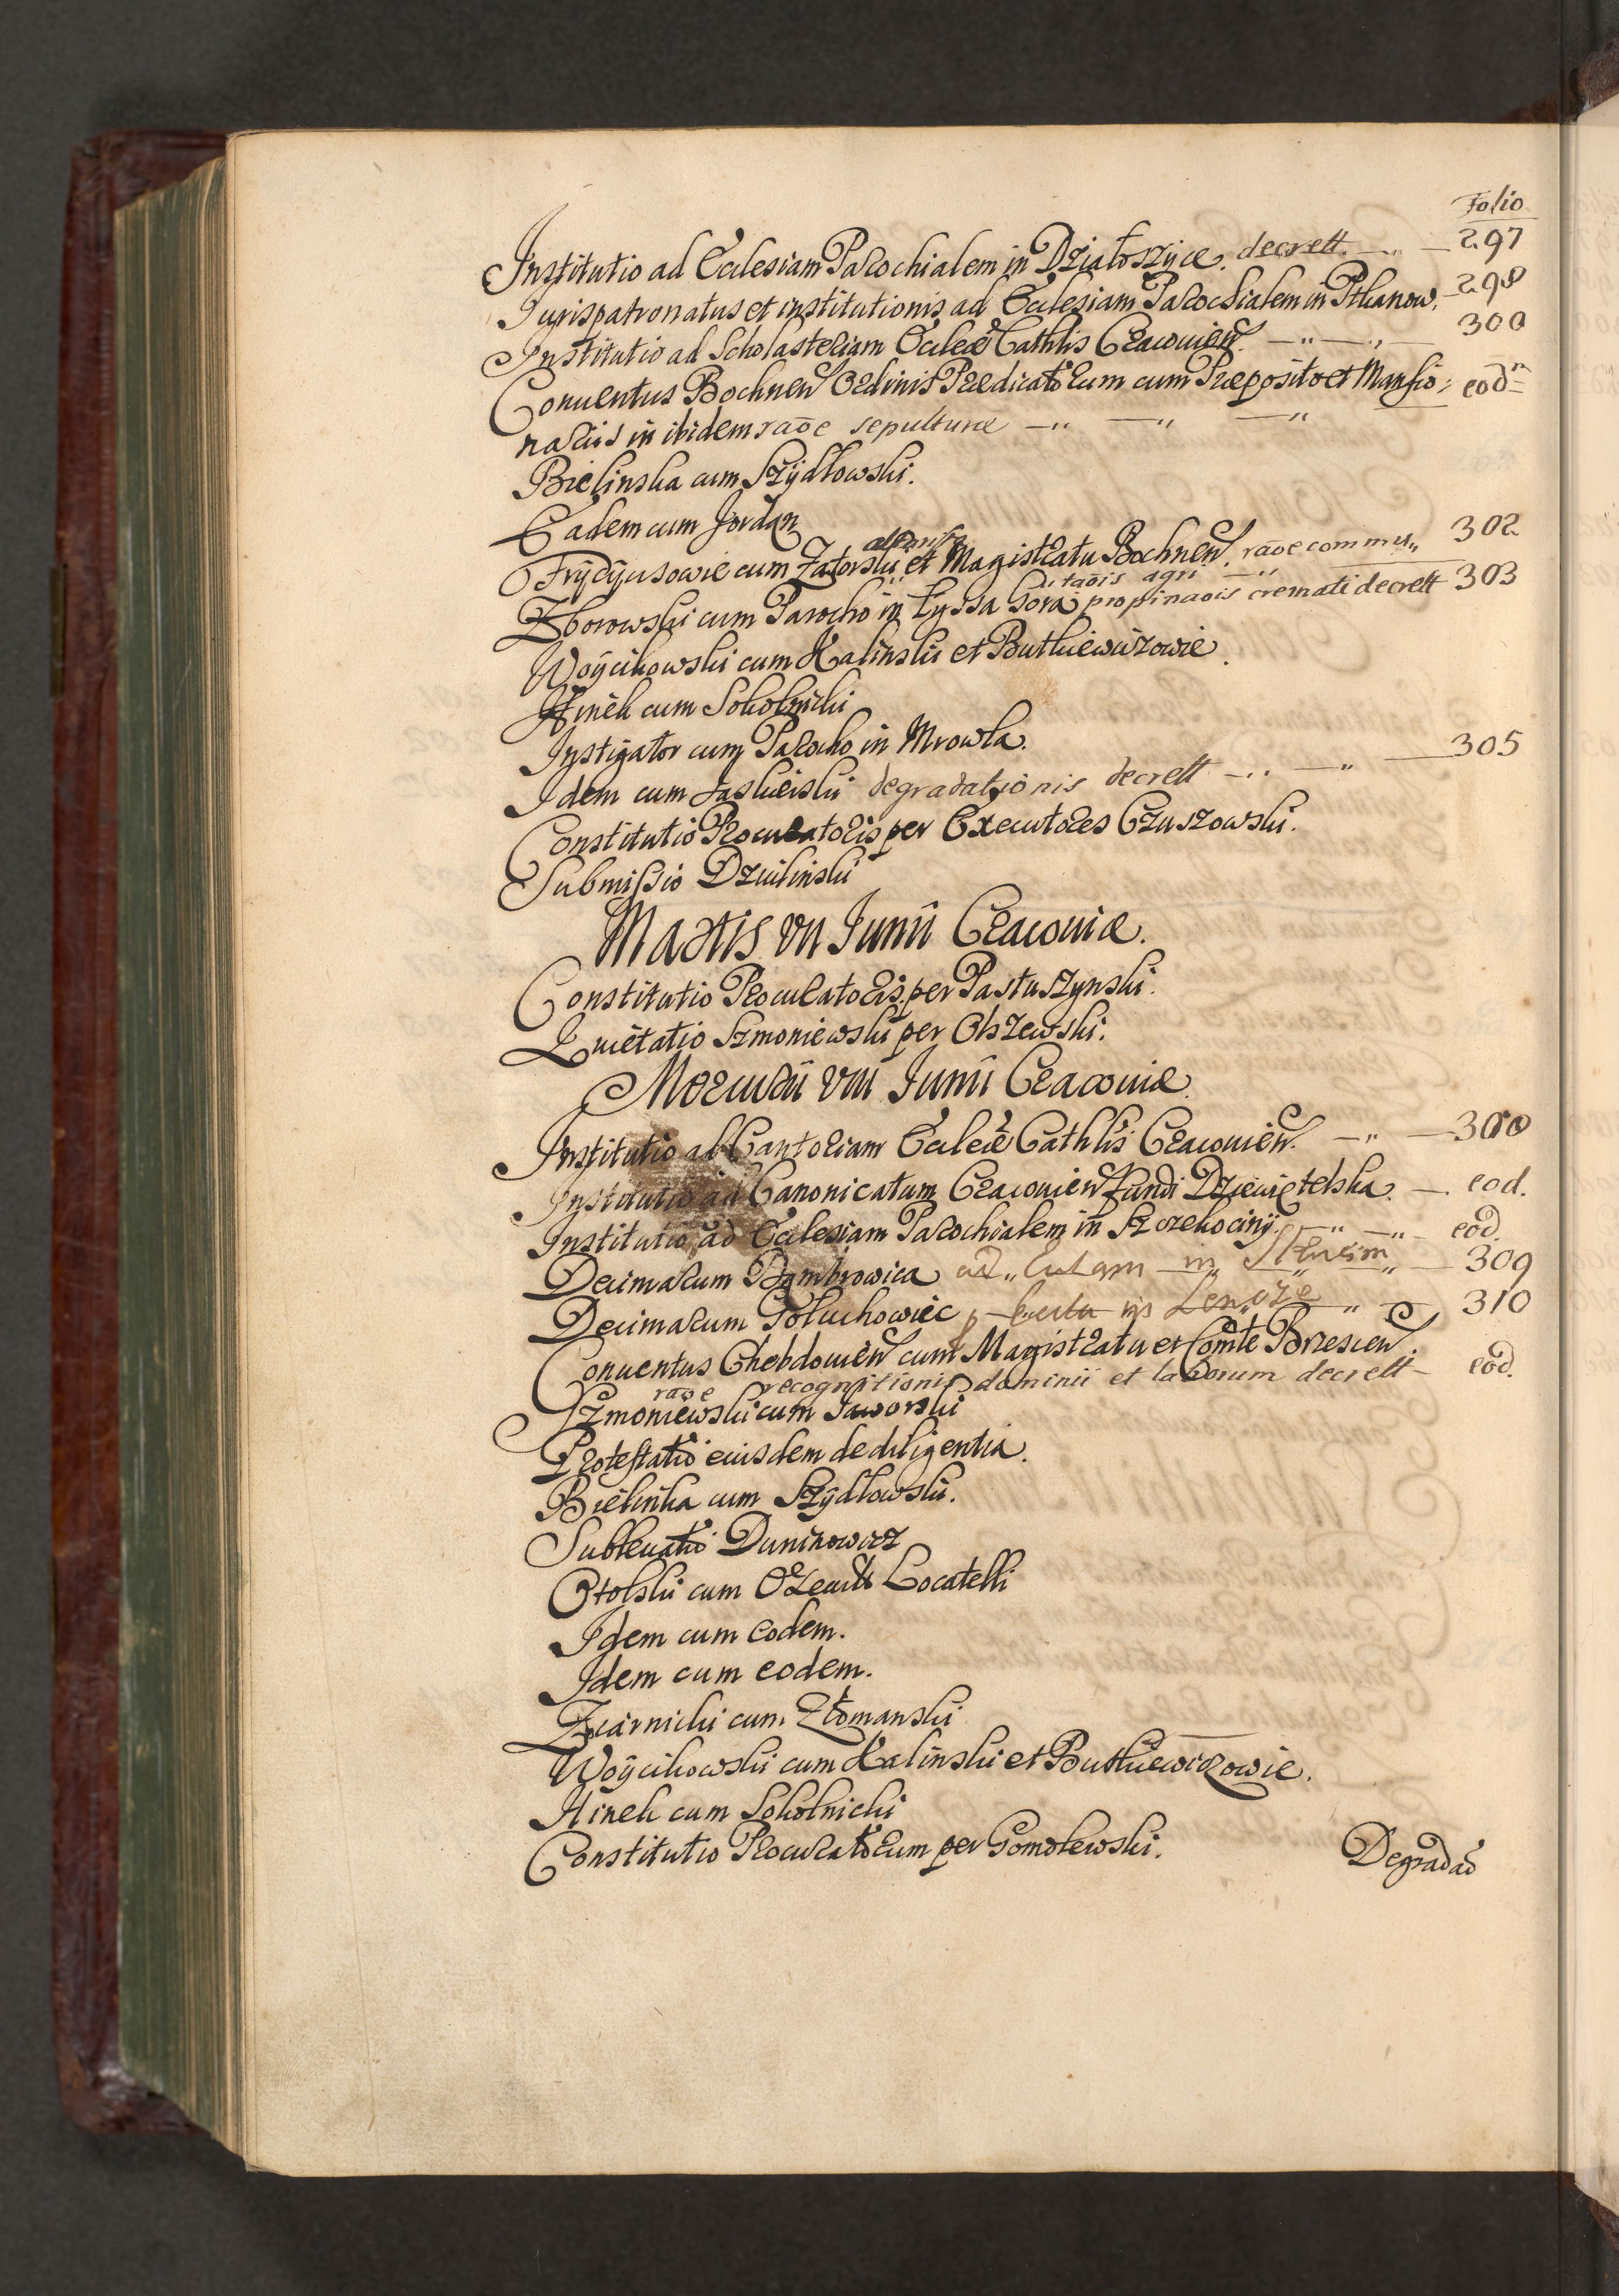 Folio
Institutio ad Ecclesiam Parochialem in Działoszyce. decrett — 297
Jurispatronatus et institutionis ad Ecclesiam Parochialem in Pthanow. 298
Institutio ad Scholasteriam Eccleæ Cathlis Cracouien. — " — " — 300
Conuentus Bochnen Ordinis Prædicatorum cum Præposito et Mansio: eodn
narijs in ibidem raõe sepulturæ — " — " — "
Bielinska cum Szÿdłowski.
Eadem cum Jordan
Frÿcÿusowie cum Zatorski et Magistratu Bochnen. raõe commu" 302
itaõis agri — "
Zborowski cum Parocho in Łyssa Gora propinaõis cremati decrett 303
Woÿcikowski cum Kalinski et Butkiewiczowie.
Hinek cum Sokolnicki
Instigator cum Parocho in Mrowla.
Idem cum Jaskierski degradationis decrett — " — " — 305
Constitutio Procuratoris per Executores Czuszowski.
Submissio Dzwilinski
Martis VII Junii Cracouiæ.
Constitutio Procuratoris per Pastuszynski.
Quietatio Szmoniewski per Olszewski.
Mercurii VIII Junii Cracouiæ.
Institutio ad Cantoriam Eccleæ Cathlis Cracouien. — " — 300
Institutio ad Canonicatum Cracouien Fundi Dziewiętelska. — eod.
Institutio ad Ecclesiam Parochialem in Szczekocinÿ. — " — " — eod.
Decimarum Dambrowica ad " in — 309
Decimarum Gołuchowiec p in — " — 310
Conuentus Chebdouien cum Magistratu et Comte Brzescien.
raõe recognitionis dominii et laborum decrett — eod.
Szmoniewski cum Jaworski
Protestatio eiusdem de diligentia.
Bielinska cum Szÿdłowski.
Subleuatio Duninowicz
Otolski cum Locatelli
Idem cum eodem.
Idem cum eodem.
Zwirnicki cum Złomanski
Woÿcikowski cum Kalinski et Butkiewiczowie.
Hinek cum Sokolnicki
Constitutio Procuratorum per Gomolewski.
Degradaõ